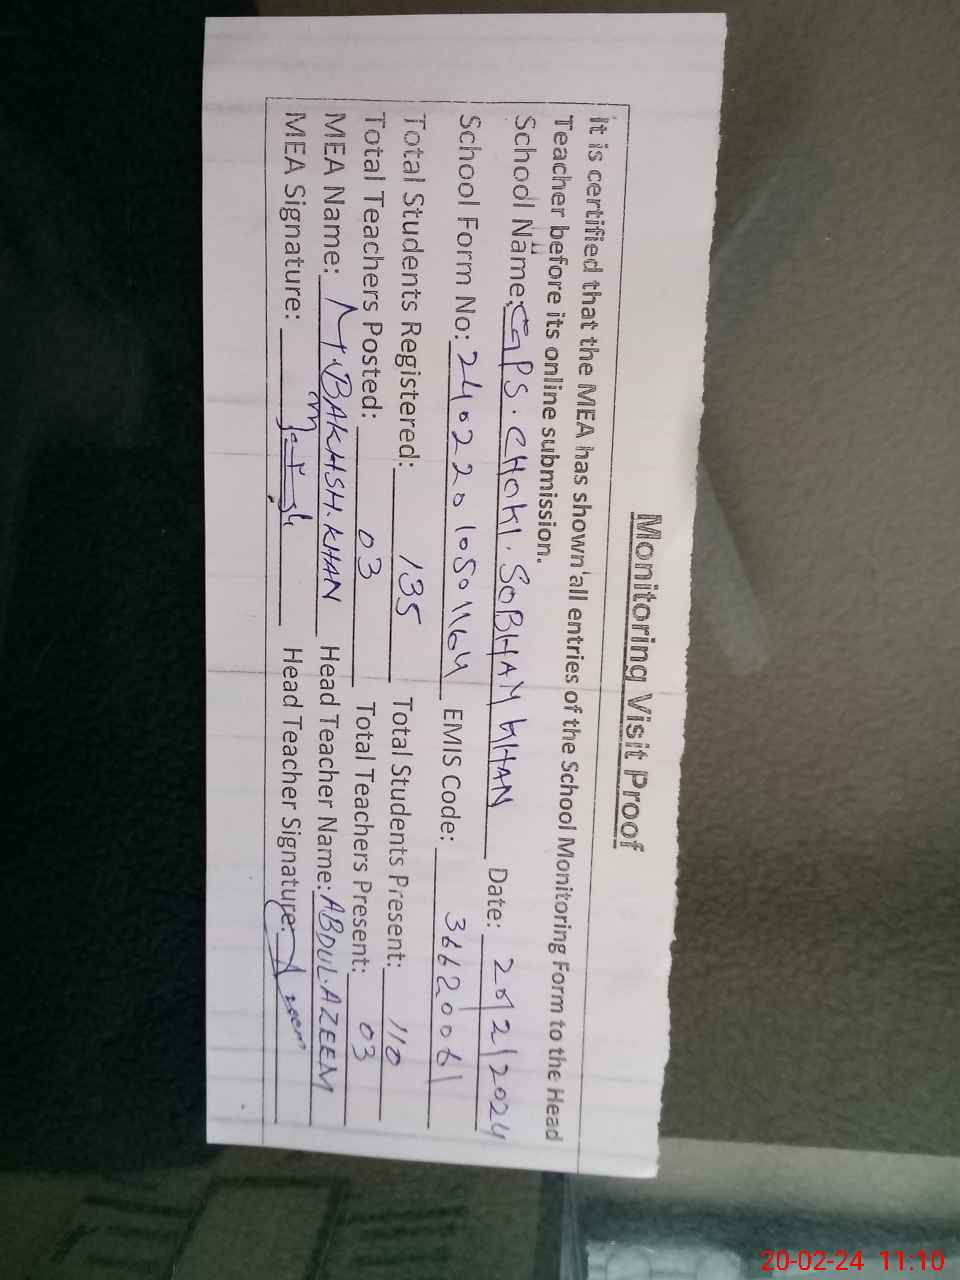 Monitoring Visit Proof
It is certified that the MEA has shown all entries of the School Monitoring Form to the Head
Teacher before its online submission.
School Name: GPS. CHOKI. SOBHAM KHAN Date: 20/2/2024
School Form No: 24022010501164 EMIS Code: 36620061
Total Students Registered: 135 Total Students Present: 110
Total Teachers Posted: 03 Total Teachers Present: 03
MEA Name: M. BAKHSH. KHAN Head Teacher Name: ABDUL. AZEEM
MEA Signature: Head Teacher Signature: Azeem
20-02-24 11:10